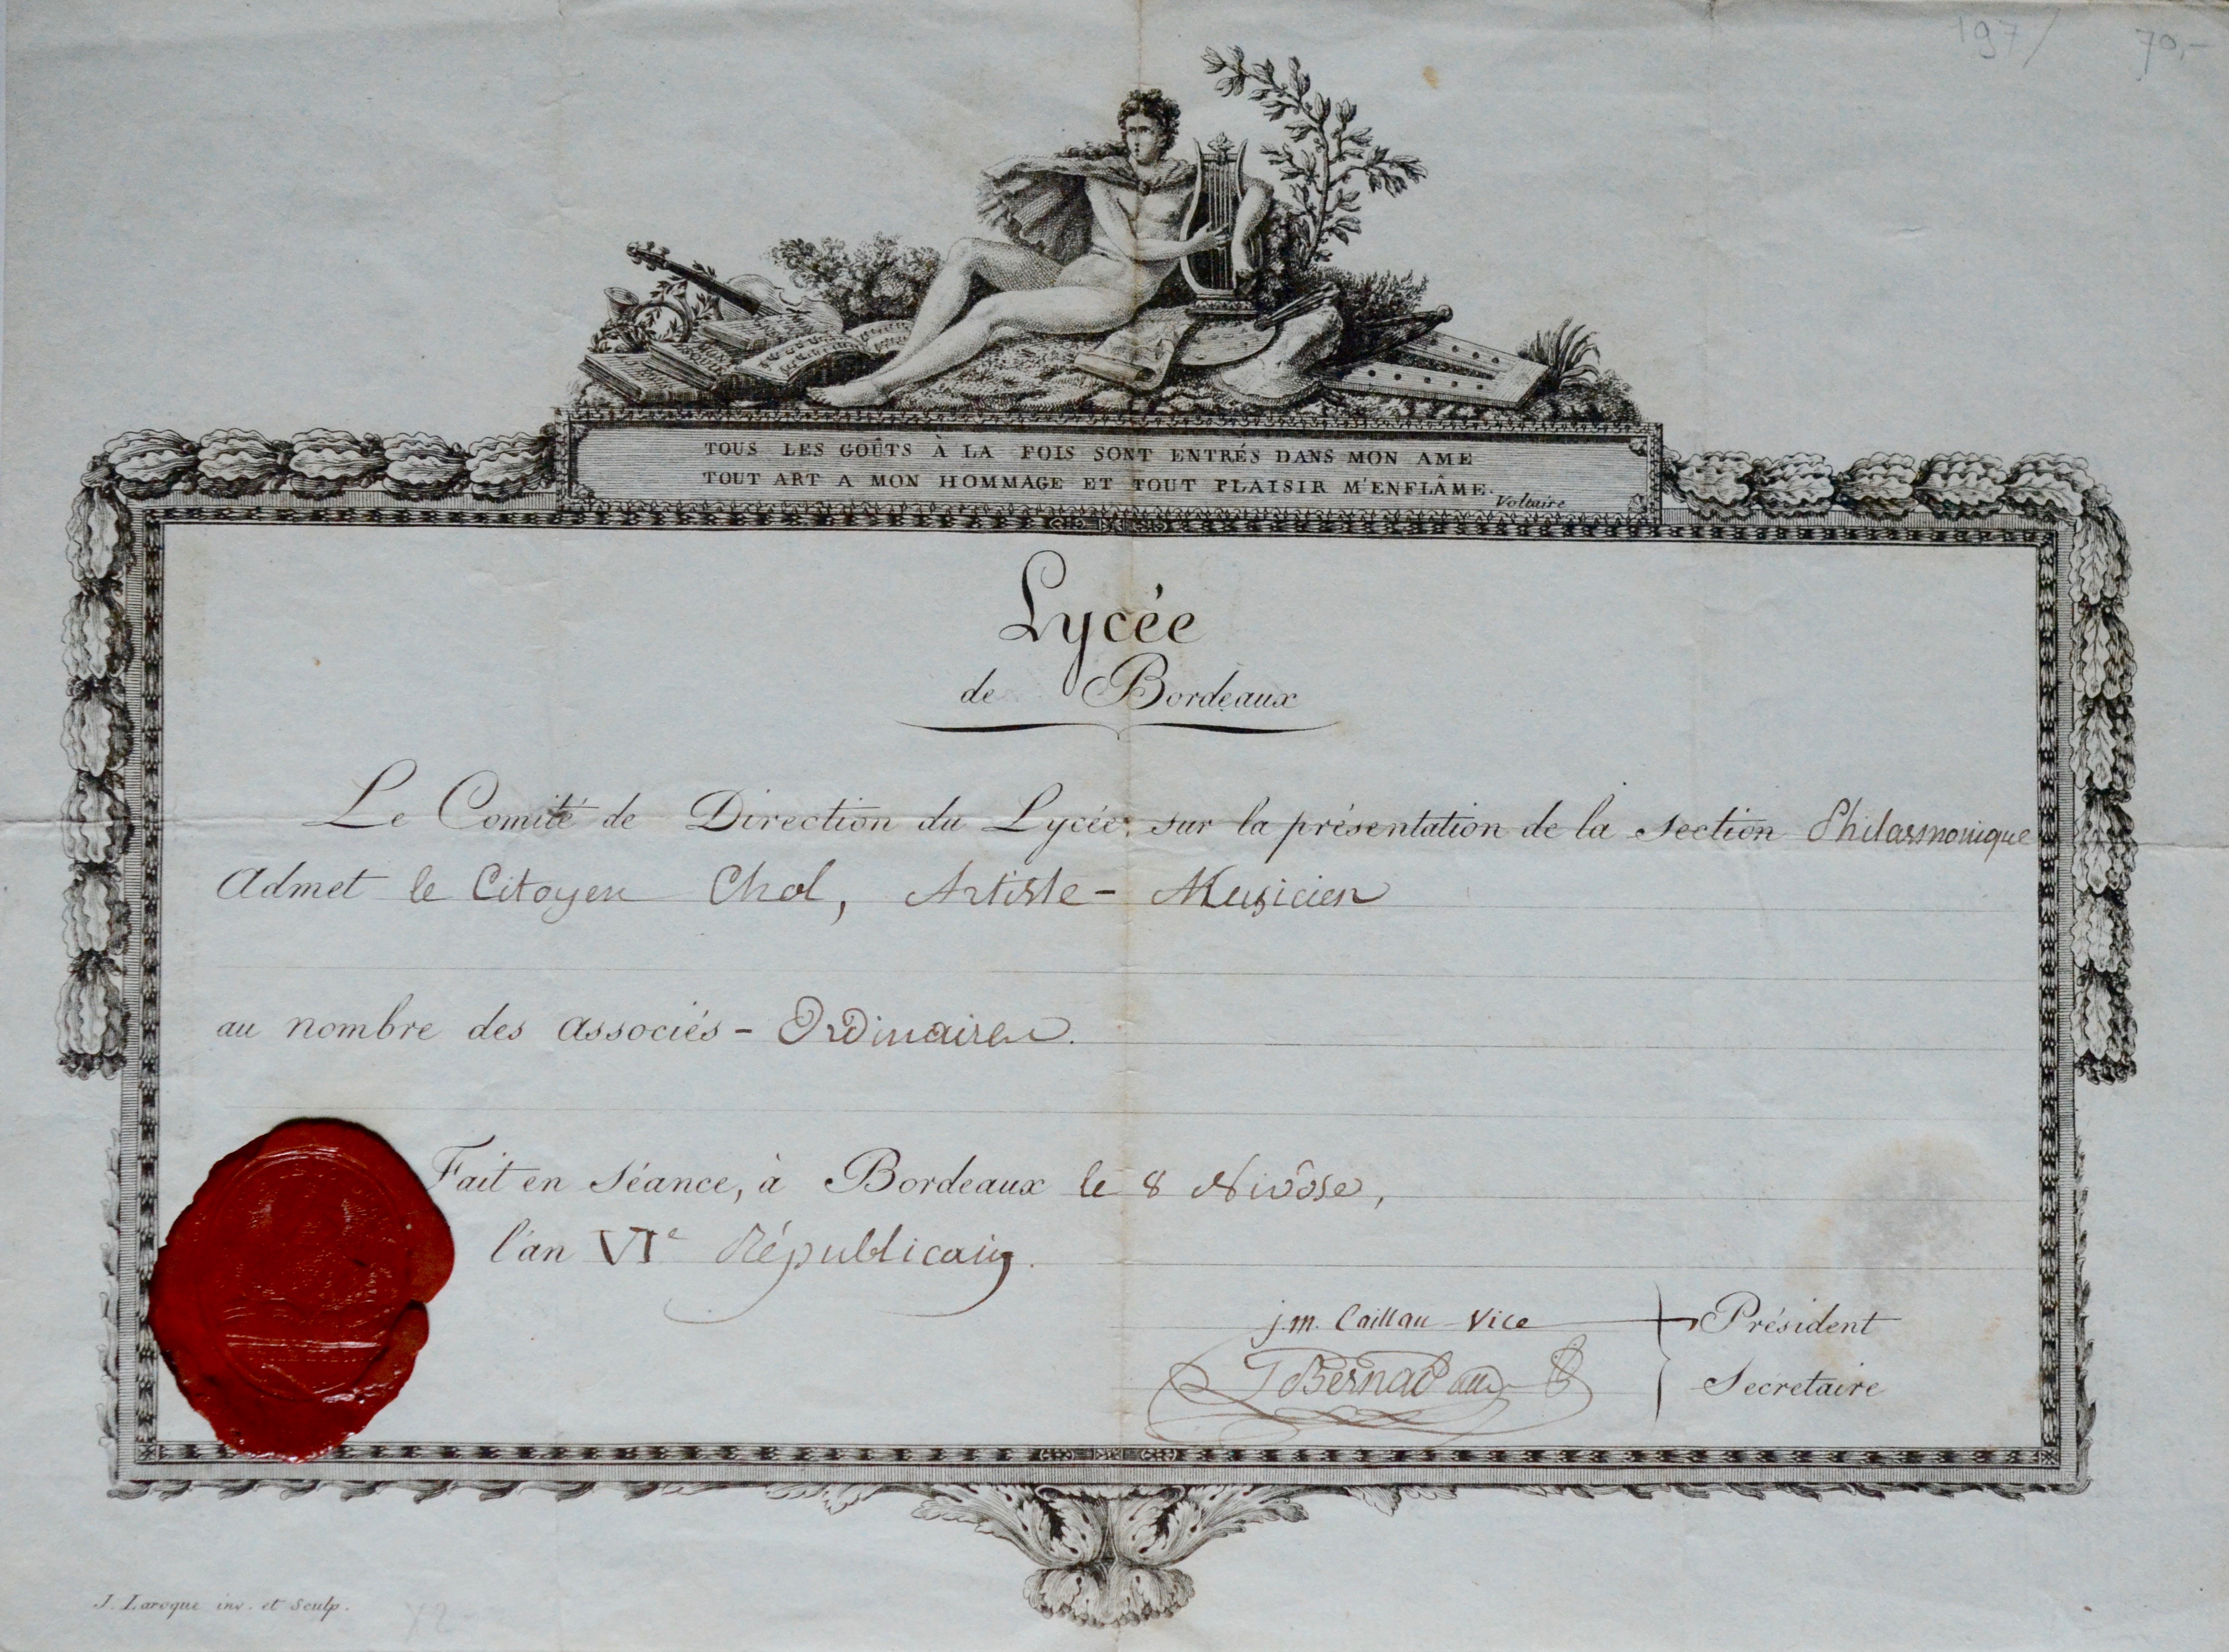 197
70,-
TOUS LES GOÛTS À LA FOIS SONT ENTRÉS DANS MON AME
TOUT ART A MON HOMMAGE ET TOUT PLAISIR M'ENFLÂME.
Voltaire
Lycée
de Bordeaux
Le Comité de Direction du Lycée, sur la présentation de la section Philarmonique
Admet le Citoyen Chol, Artiste - Musicien
au nombre des associés - Ordinaires.
Fait en Séance, à Bordeaux le 8 Nivôse,
l'an VIe Républicain.
j.m. Caillau Vice Président
Bernadau Secretaire
J. Laroque inv. et Sculp.